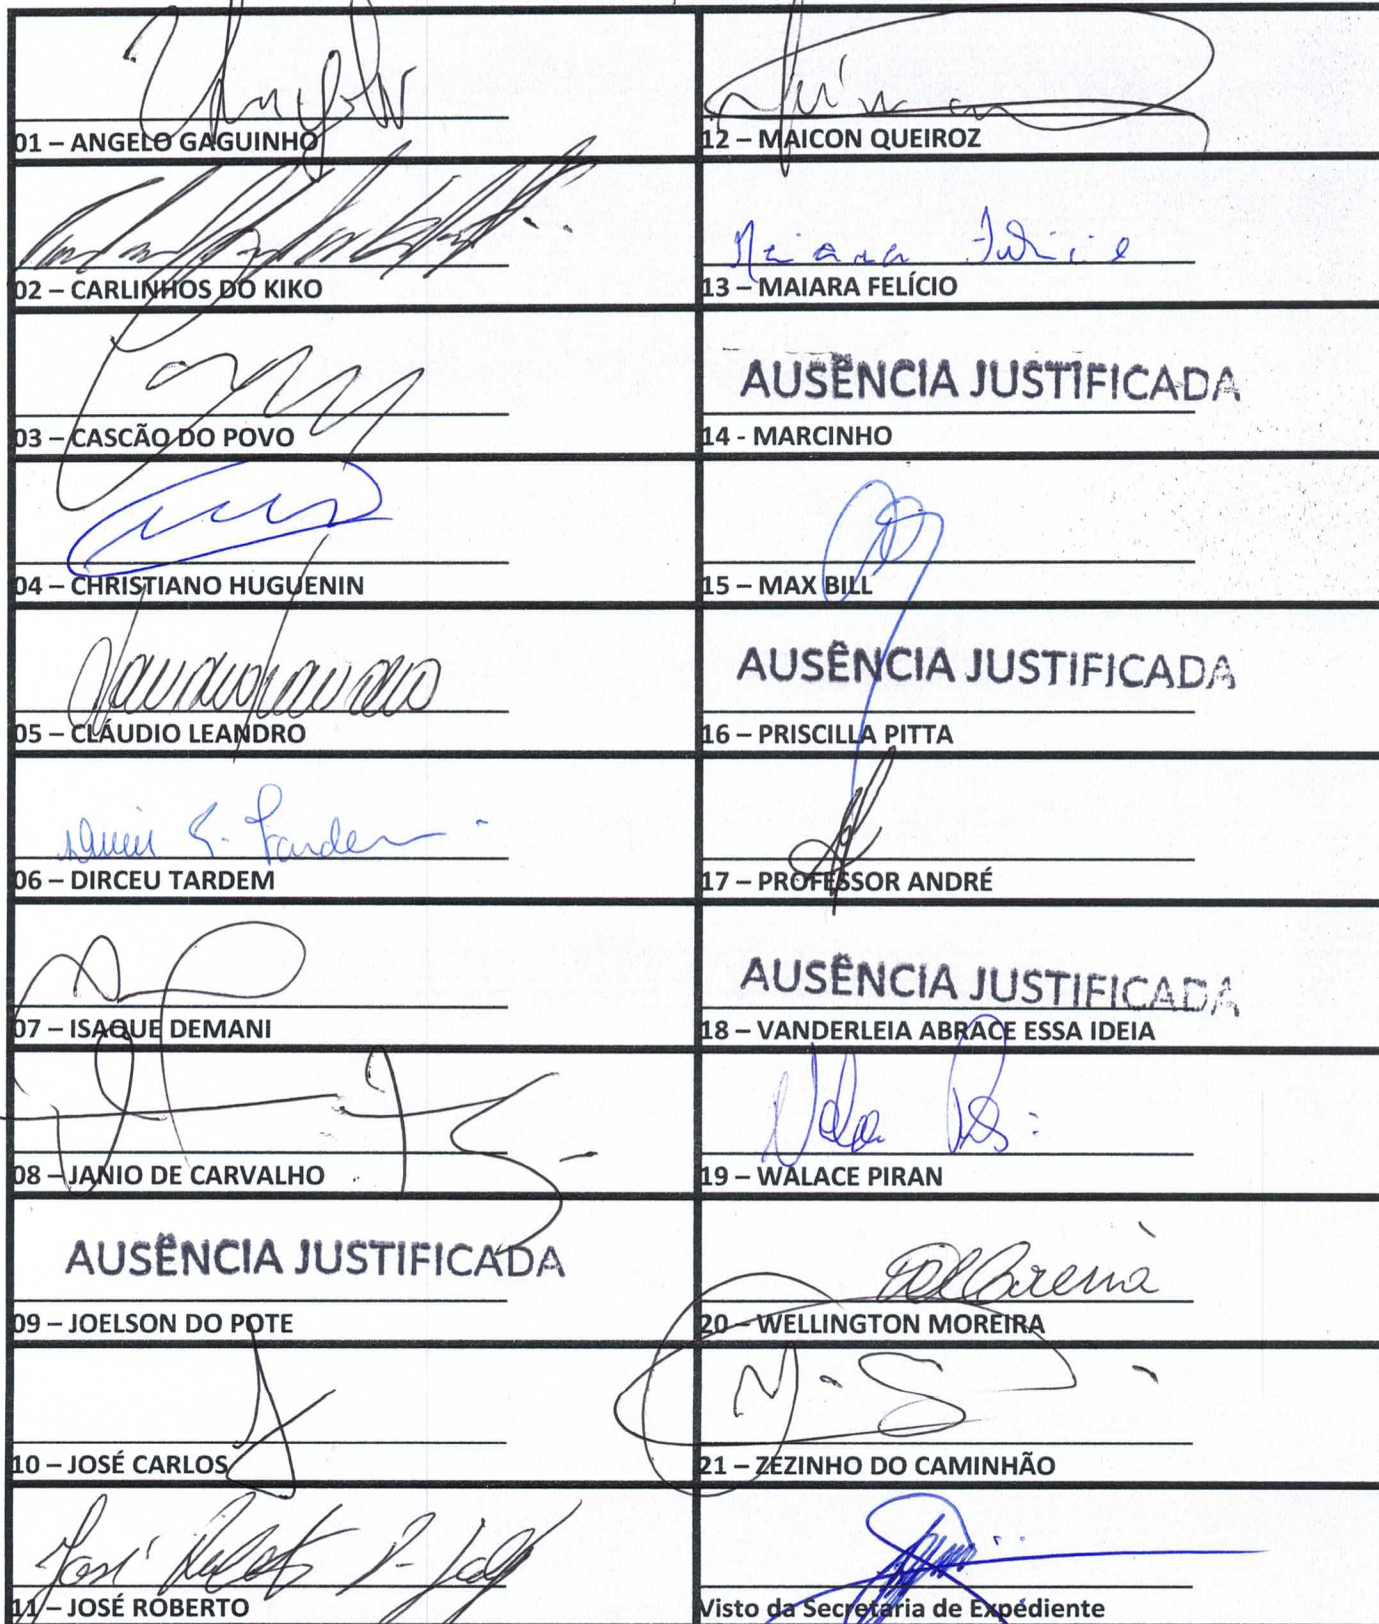 01 – ANGELO GAGUINHO
02 – CARLINHOS DO KIKO
03 – CASCÃO DO POVO
04 – CHRISTIANO HUGUENIN
05 – CLÁUDIO LEANDRO
06 – DIRCEU TARDEM
07 – ISAQUE DEMANI
08 – JANIO DE CARVALHO
AUSÊNCIA JUSTIFICADA
09 – JOELSON DO POTE
10 – JOSÉ CARLOS
José Roberto
11 – JOSÉ ROBERTO
12 – MAICON QUEIROZ
Maiara
13 – MAIARA FELÍCIO
AUSÊNCIA JUSTIFICADA
14 - MARCINHO
15 – MAX BILL
AUSÊNCIA JUSTIFICADA
16 – PRISCILLA PITTA
17 – PROFESSOR ANDRÉ
AUSÊNCIA JUSTIFICADA
18 – VANDERLEIA ABRACE ESSA IDEIA
19 – WALACE PIRAN
20 – WELLINGTON MOREIRA
21 – ZEZINHO DO CAMINHÃO
Visto da Secretaria de Expediente